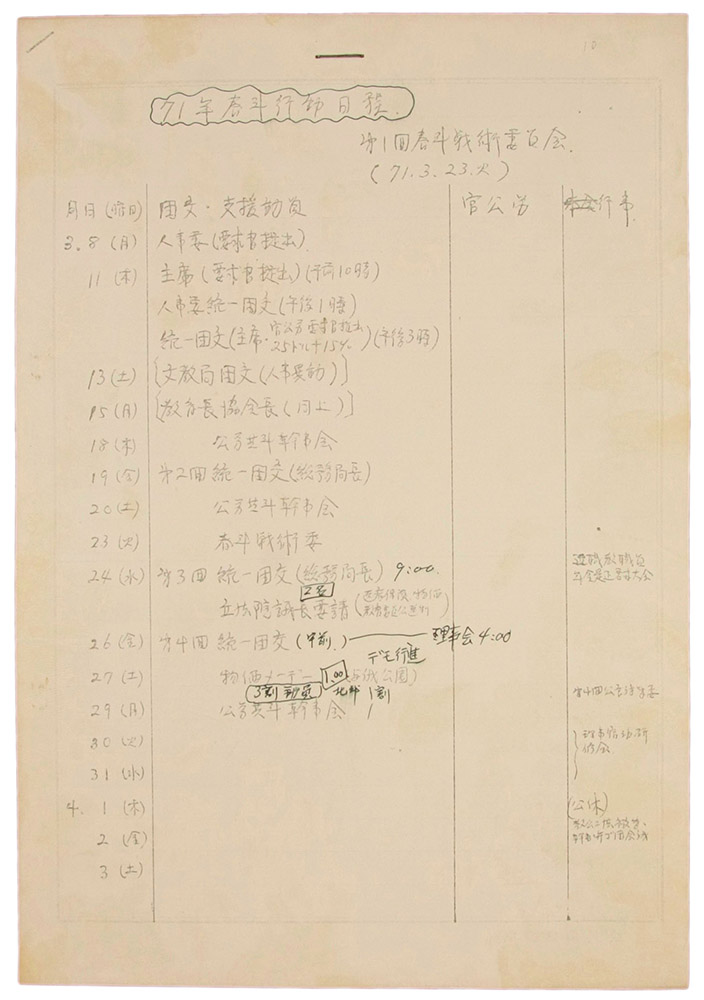 10
71年春斗行動日程.
第1回春斗戦術委員会.
(71.3.23.火)
月日(曜日) 団交・支援動員 官公労 行事
3.8(月) 人事委(要求書提出)
11(木) 主席(要求書提出)(午前10時)
人事委統一団交(午後1時)
統一団交(主席・官公労要求書提出 25ドル+15%)(午後3時)
13(土) [文教局団交(人事異動)]
15(月) [教育長協会長(同上)]
18(木) 公労共斗幹事会
19(金) 第2回統一団交(総務局長)
20(土) 公労共斗幹事会
23(火) 春斗戦術委
24(水) 第3回統一団交(総務局長) 9:00.
2名
立法院議長要請
26(金) 第4回統一団交(午前.) 理事会4:00
デモ行進
27(土) 物価メーデー 1.00 与儀公園)
3割動員 北部1割
29(月) 公労共斗幹事会
30(火)
31(水)
4.1(木) (公休)
2(金)
3(土)